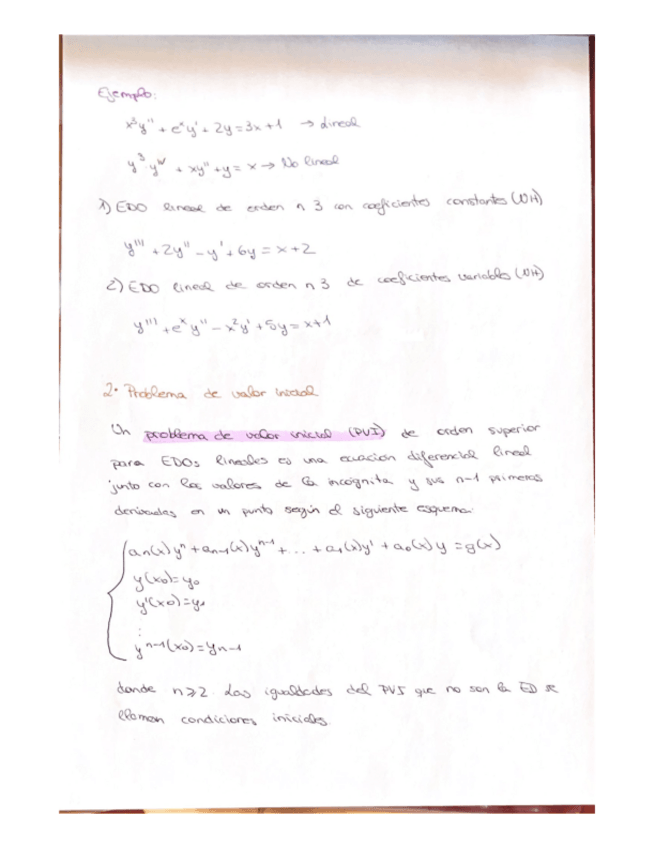 Ejemplo:
x³y'' + eˣy' + 2y = 3x+1 → Lineal
y³yᴵⱽ + xy'' + y = x → No lineal
1) EDO lineal de orden n 3 con coeficientes constantes (NH)
y''' + 2y'' - y' + 6y = x+2
2) EDO lineal de orden n 3 de coeficientes variables (NH)
y''' + eˣy'' - x²y' + 5y = x+1
2. Problema de valor inicial
Un problema de valor inicial (PVI) de orden superior
para EDOs lineales es una ecuación diferencial lineal
junto con los valores de la incógnita y sus n-1 primeras
derivadas en un punto según el siguiente esquema:
aₙ(x)yⁿ + aₙ₋₁(x)yⁿ⁻¹ + ... + a₁(x)y' + a₀(x)y = g(x)
y(x₀) = y₀
y'(x₀) =
⋮
yⁿ⁻¹(x₀) = yₙ₋₁
donde n ≥ 2. Las igualdades del PVI que no son la ED se
llaman condiciones iniciales.